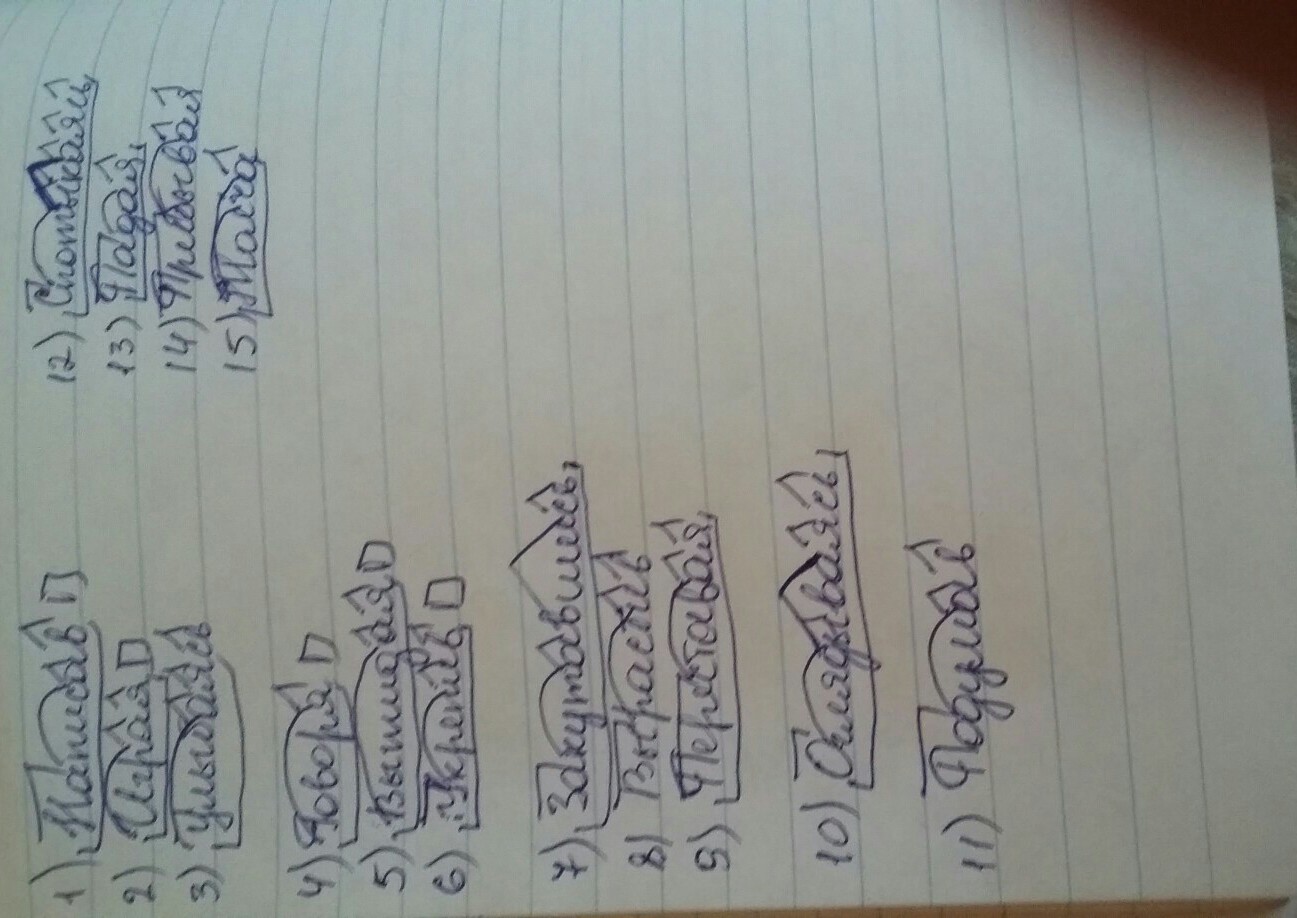 1) Написав
2) Играя
3) Улыбаясь
4) Говоря
5) Вышивая
6) Укрепив
7) Закутавшись,
8) Вырастив
9) Переставая,
10) Оглядываясь,
11) Подумав
12) Спотыкаясь,
13) Падая,
14) Прибывая
15) Молча